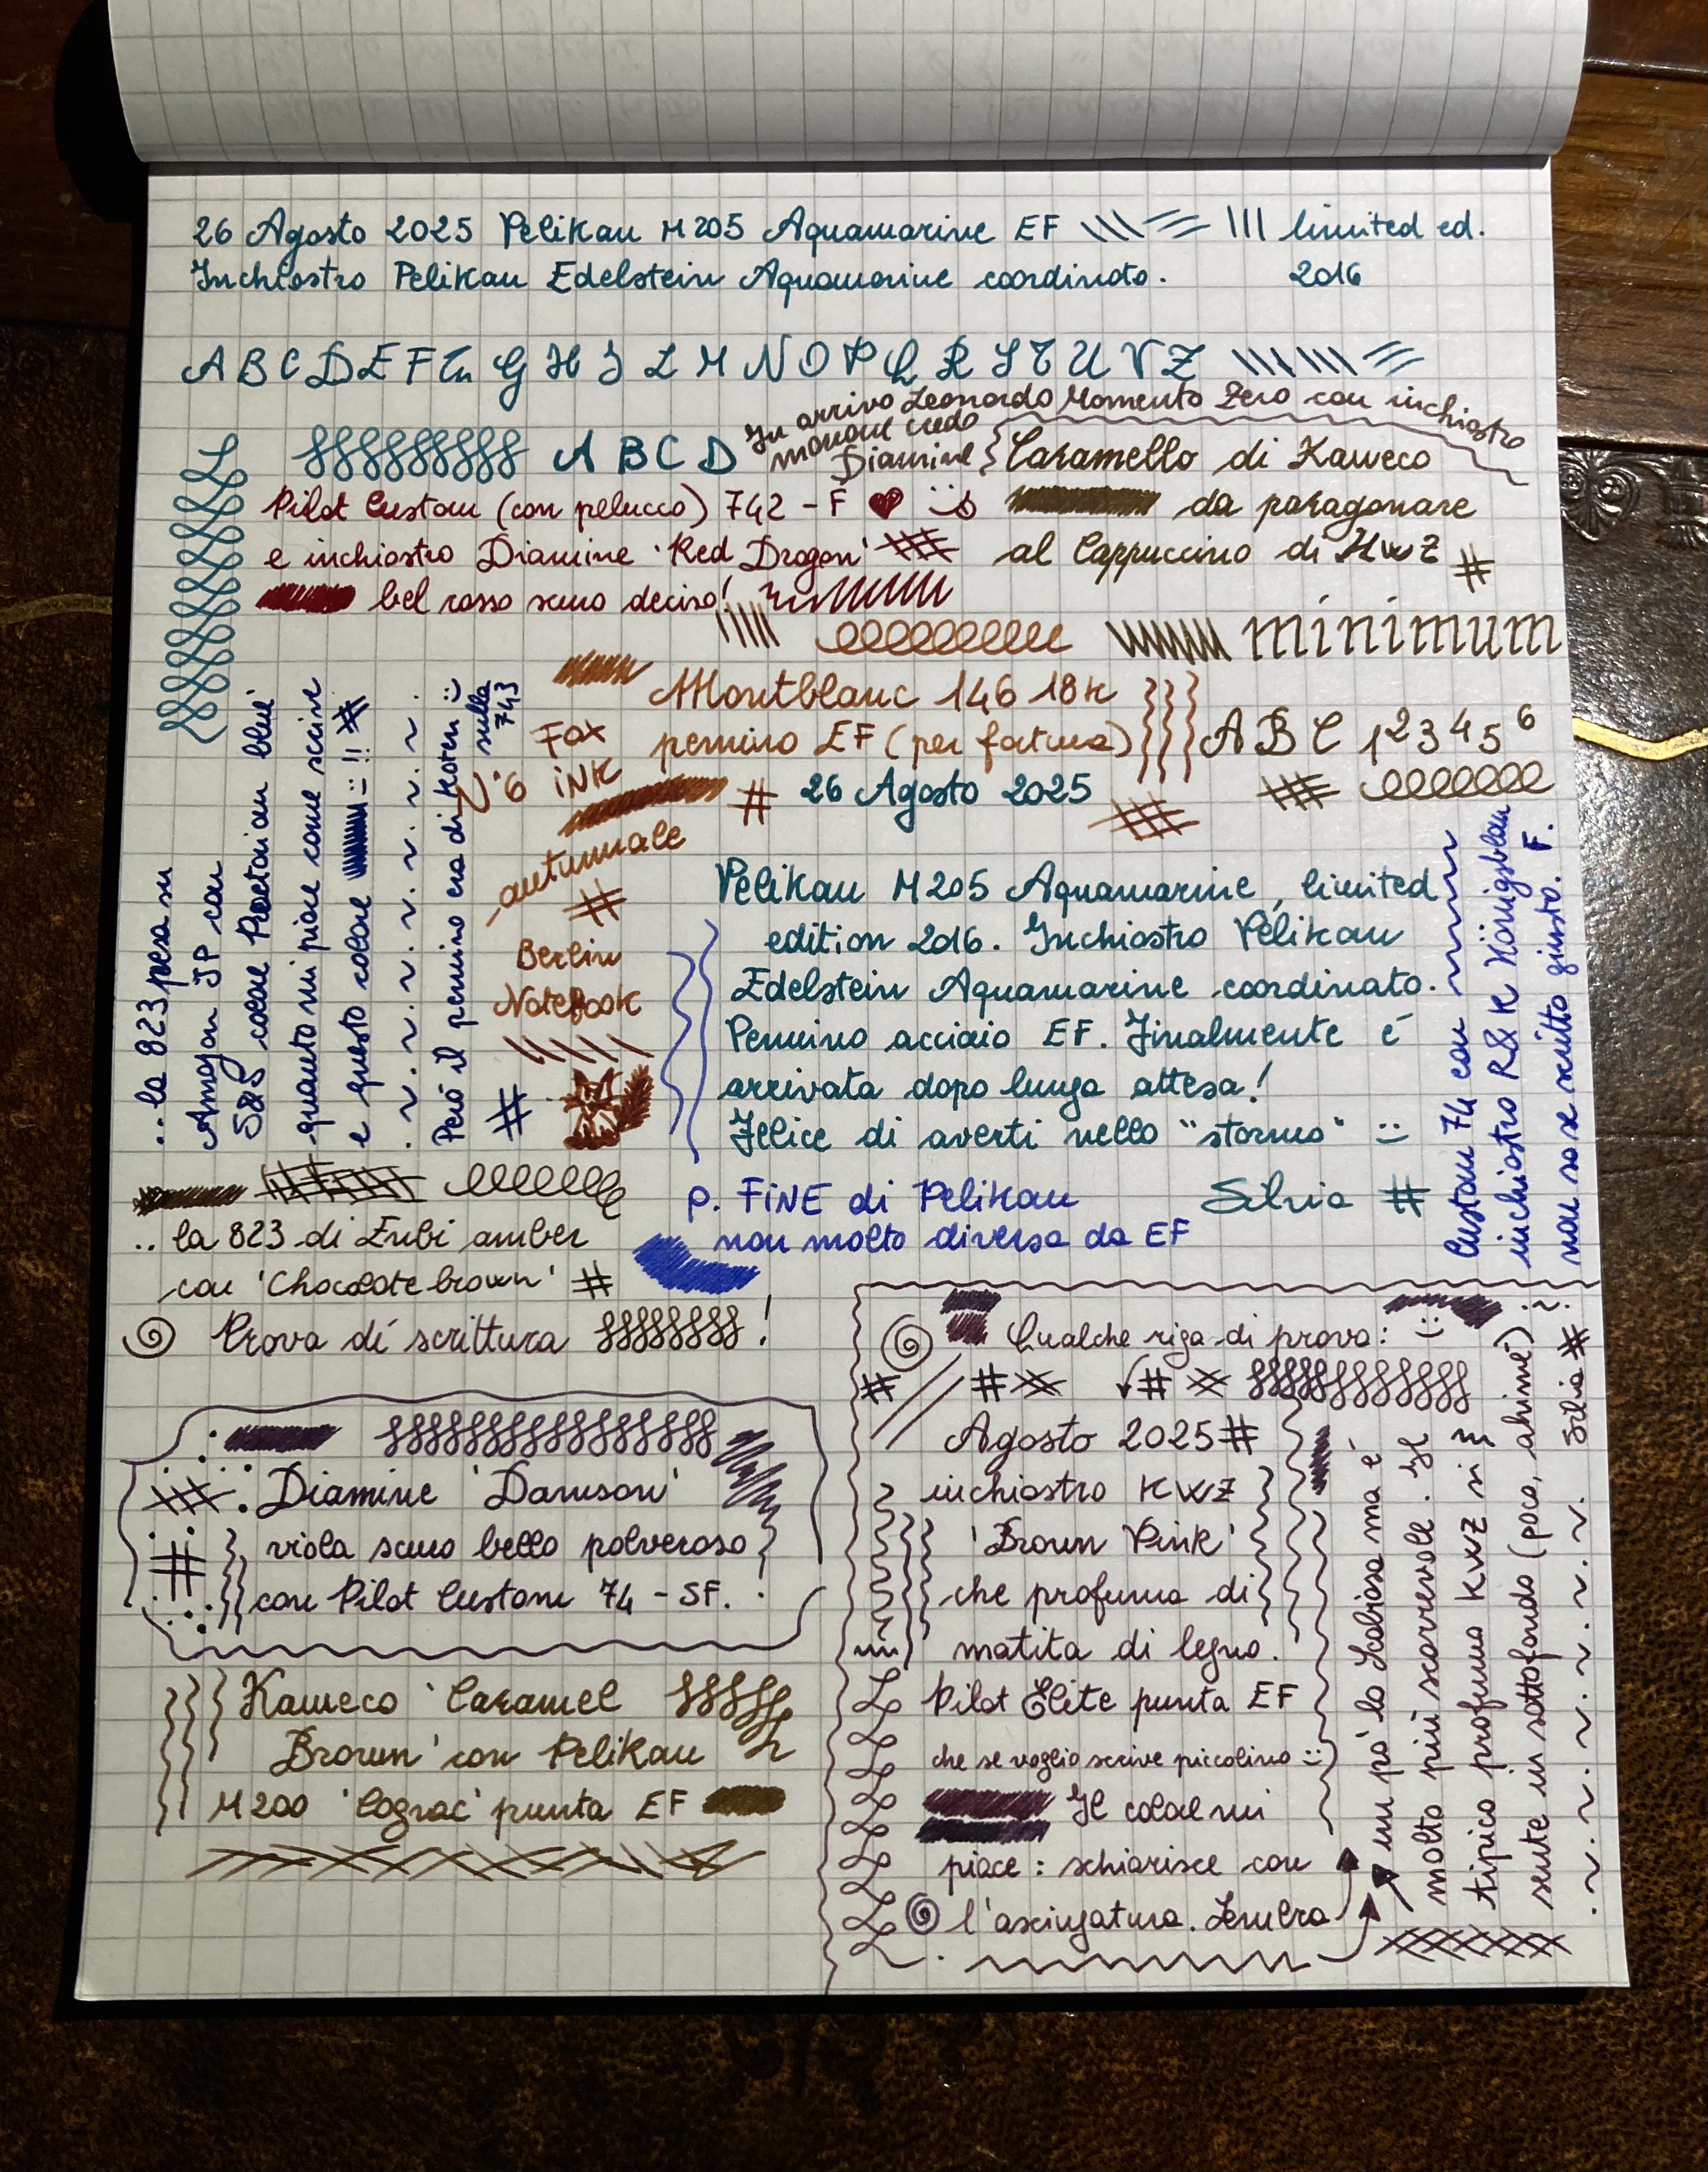 26 Agosto 2025 Pelikan M205 Aquamarine EF limited ed.
Inchiostro Pelikan Edelstein Aquamarine coordinato. 2016
A B C D E F G H I L M N O P Q R S T U V Z
In arrivo Leonardo Momento Zero con inchiostro
marrone credo
Diamine
A B C D
Pilot Custom (con pelucco) 742 - F
e inchiostro Diamine 'Red Dragon'
bel rosso scuro deciso!
Caramello di Kaweco
da paragonare
al Cappuccino di KWZ #
minimum
Montblanc 146 18k
pennino EF (per fortuna)
A B C 1 2 3 4 5 6
Fox
INK
autunnale
#
Berlin
Notebook
# 26 Agosto 2025
..la 823 presa su
Amazon JP con
S&S colore blue
quanto mi piace come scrive
e questo colore !! #
Però il pennino era di Koten :)
sulla
743
#
Pelikan M205 Aquamarine, limited
edition 2016. Inchiostro Pelikan
Edelstein Aquamarine coordinato.
Pennino acciaio EF. Finalmente è
arrivata dopo lunga attesa!
Felice di averti nello "stormo" :)
Silvia #
p. FINE di Pelikan
non molto diversa da EF
Custom 74 con
inchiostro R&K Königsblau
non so se scritto giusto. F.
.. la 823 di amber
con 'Chocolate brown' #
Prova di scrittura !
Diamine 'Damson'
viola scuro bello polveroso
con Pilot Custom 74 - SF.
Kaweco 'Caramel
Brown' con Pelikan
M200 'Cognac' punta EF
Qualche riga di prova: :)
# # #
Agosto 2025 #
inchiostro KWZ
'Brown Pink'
che profuma di
matita di legno.
Pilot Elite punta EF
che se voglio scrive piccolino :)
Il colore mi
piace: schiarisce con
l'asciugatura. Sembra
un pò lo Scabiosa ma è
molto più scorrevole. Il
tipico profumo KWZ si
sente in sottofondo (poco, ahimè) :
Silvia #